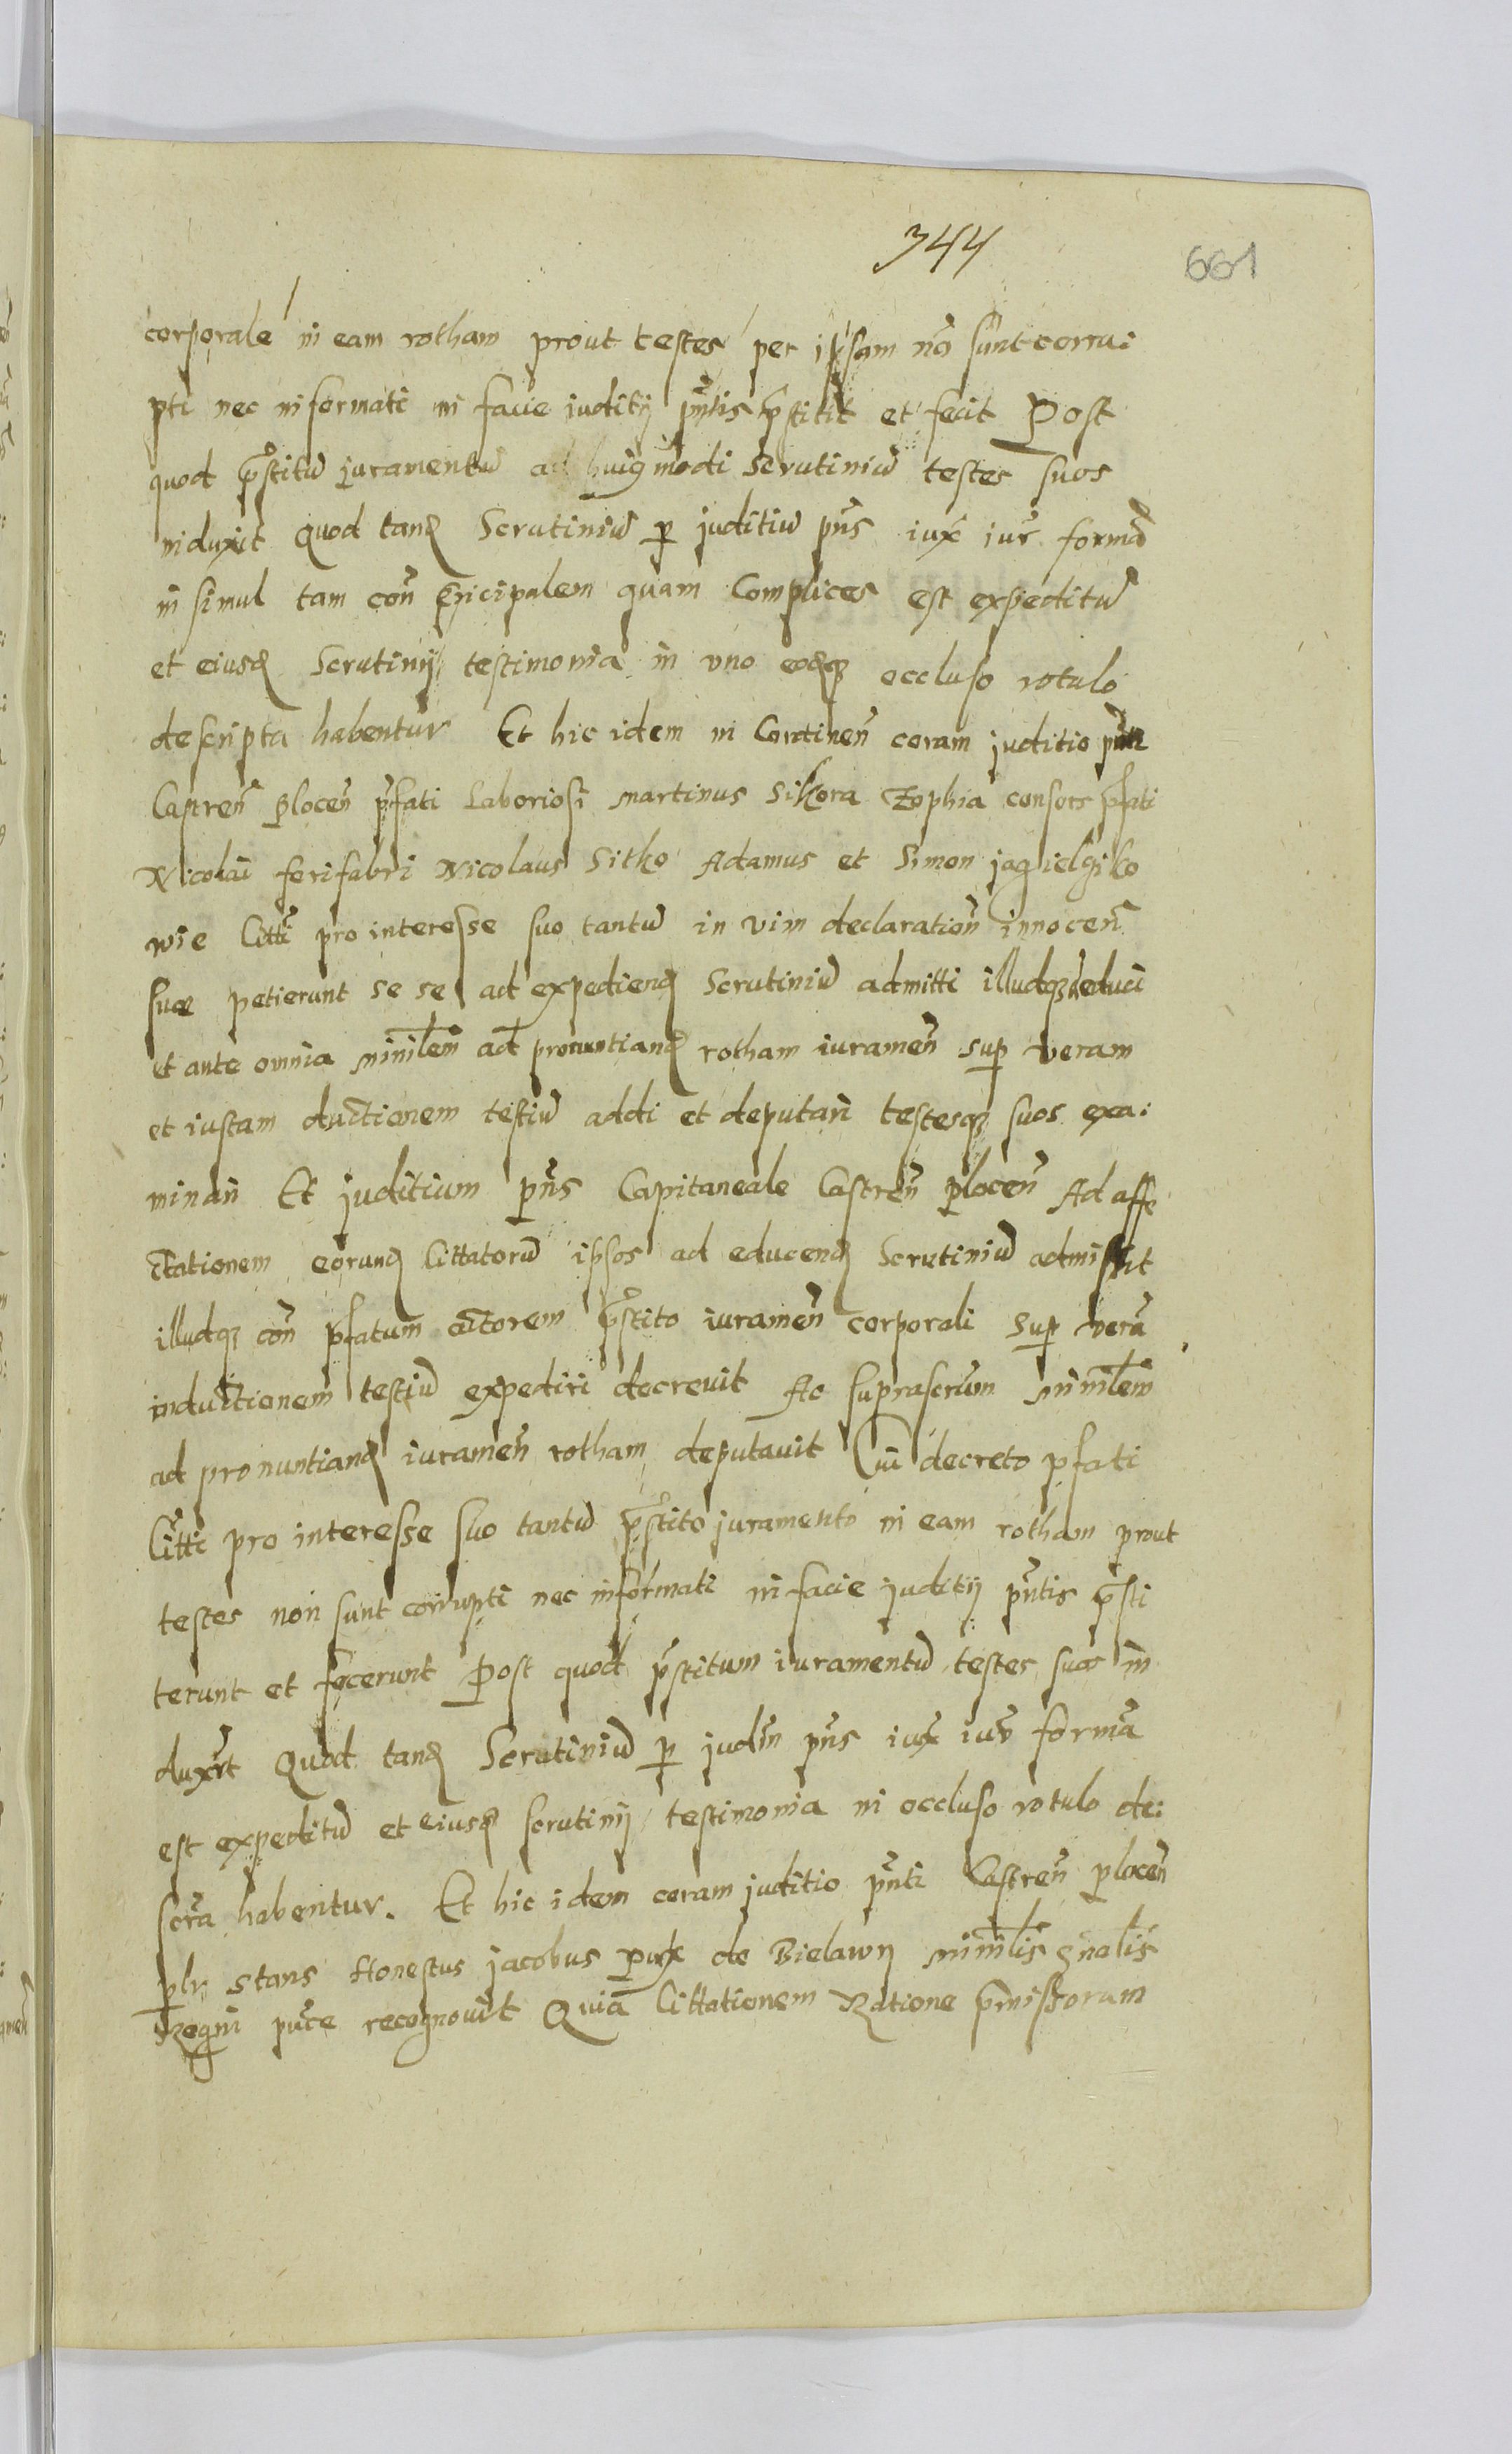 344
661
corporale in eam rotham prout testes per ipsam nō sunt corru:
pti nec informati in facie juditij pn̄tis p̄stitit et fecit Post
quod p̄stitū juramentū ad huiq modi Scrutiniū testes suos
induxit Quod tandꝫ Scrutiniū p juditiū pn̄s iux iur formā
in simul tam con̄ Principalem quam Complices est expeditū
et eiusdꝫ Scrutinij testimonia in vno eodqꝫ occluso rotulo
descripta habentur Et hic idem in Continen̄ coram juditio pn̄ti
Castren̄ plocen̄ p̄fati Laboriosi Martinus Sikora Zophia consors p̄fati
Nicolai ferifabri Nicolaus Sitko Adamus et Simon jagielgiko
wie Citti pro interesse suo tantū in vim declaration̄ innocen̄
suæ petierunt se se ad expediendꝫ Scrutiniū admitti illudqꝫ educi
et ante omnia ministlem ad pronuntiandꝫ rotham iuramen̄ sup veram
et iustam ductionem testiū addi et deputari testesqꝫ suos exa:
minari Et juditium pn̄s Capitaneale Castren̄ plocen̄ Ad affe
ctationem eorundꝫ Cittatorū ipsos ad educendꝫ Scrutiniū admissit
illudqꝫ con̄ p̄fatum actorem p̄stito iuramen̄ corporali sup verā
inductionem testiū expediri decrevit Ac suprascrm̄ ministlem
ad pronuntiandꝫ iuramen̄ rotham deputavit Cui decreto p̄fati
Citti pro interesse suo tantū p̄stito juramento in eam rotham prout
testes non sunt corrupti nec informati in facie juditij pn̄tis p̄sti
terunt et fecerunt Post quod p̄stitum iuramentū testes suos in
duxrt Quod tandꝫ Scrutiniū p judm̄ pn̄s iux iur formā
est expeditū et eiusdꝫ scrutinij testimonia in occluso rotulo de:
scrā habentur. Et hic idem coram juditio pn̄ti Castren̄ plocen̄
plr̄ stans Honestus jacobus de Bielawij ministlis gn̄alis
Regni puce recognovit Quia Cittationem Ratione p̄missorum